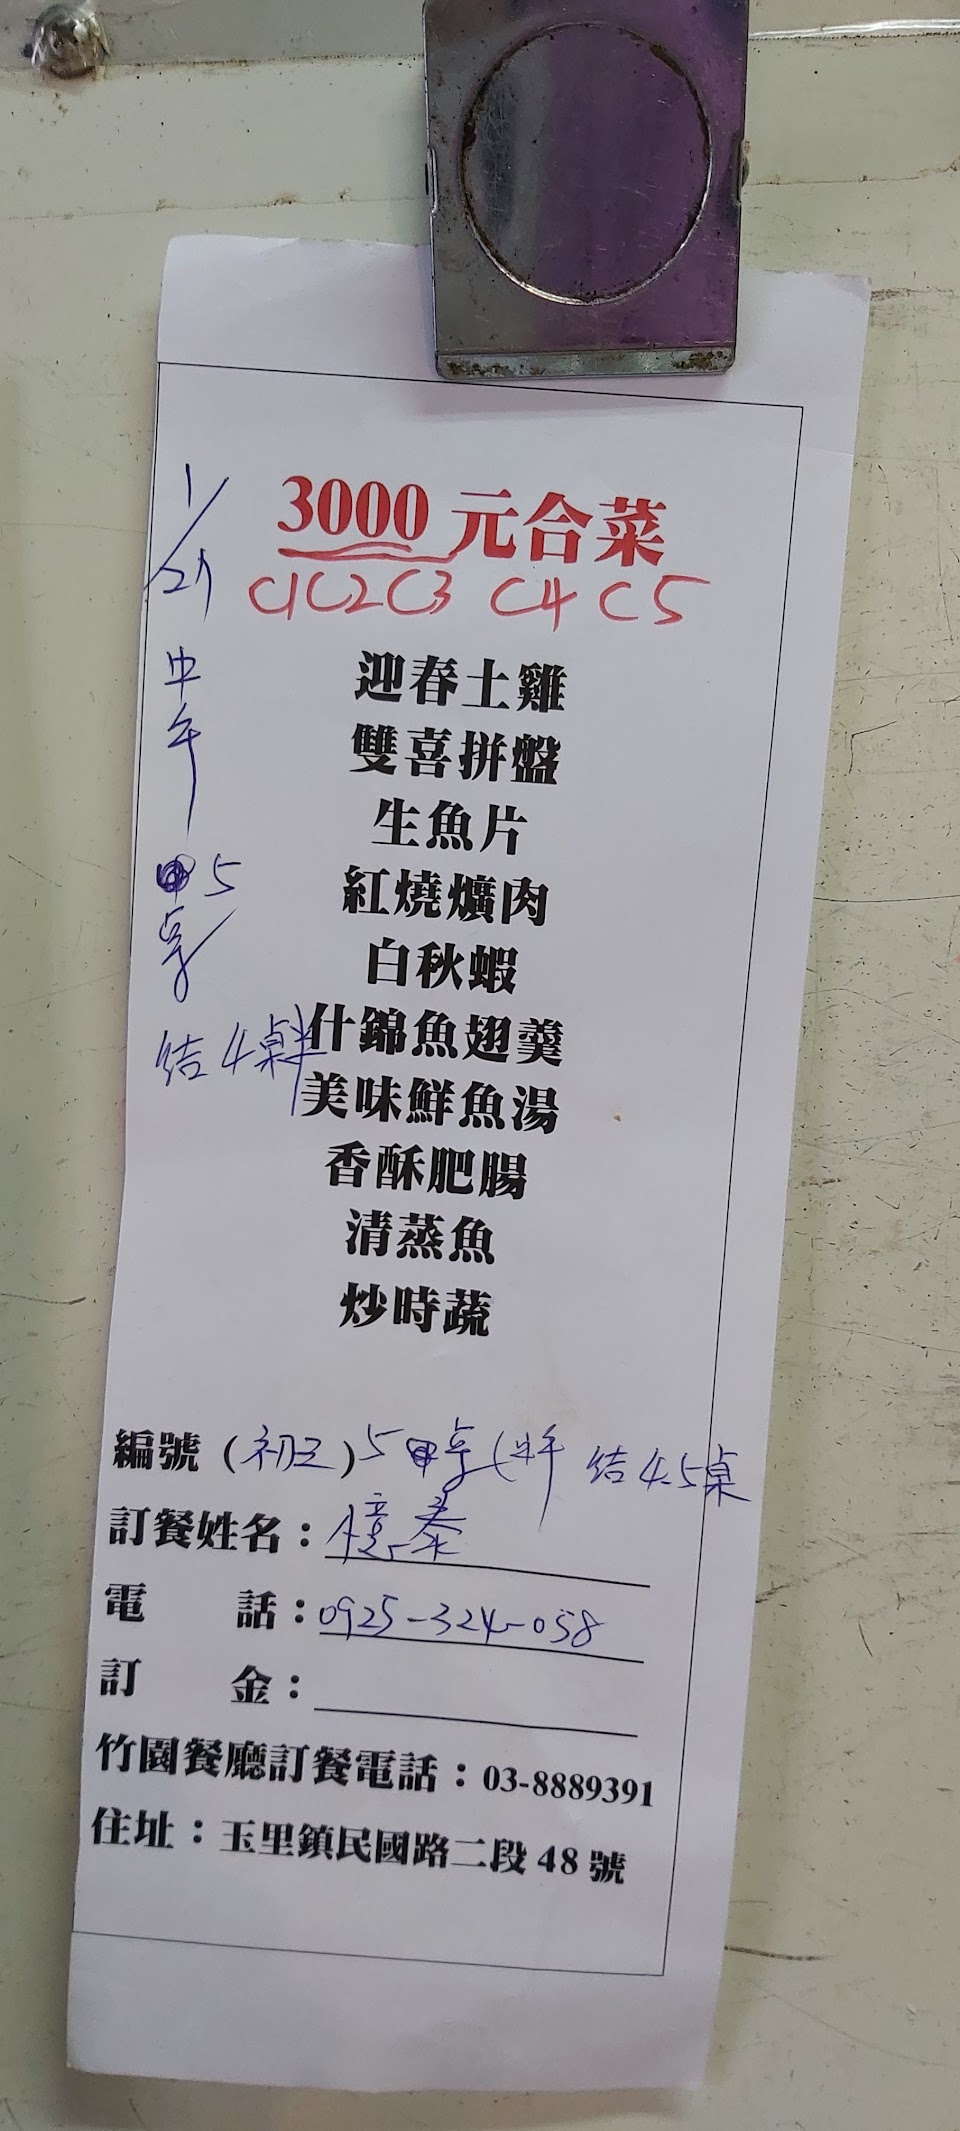 3000 元合菜
C1 C2 C3 C4 C5
1/21
中午
5
桌
結4桌半
迎春土雞
雙喜拼盤
生魚片
紅燒爌肉
白秋蝦
什錦魚翅羹
美味鮮魚湯
香酥肥腸
清蒸魚
炒時蔬
編號(初五)5 桌 結4.5桌
訂餐姓名：憶泰
電 話：0925-324-058
訂 金：
竹園餐廳訂餐電話：03-8889391
住址：玉里鎮民國路二段48號